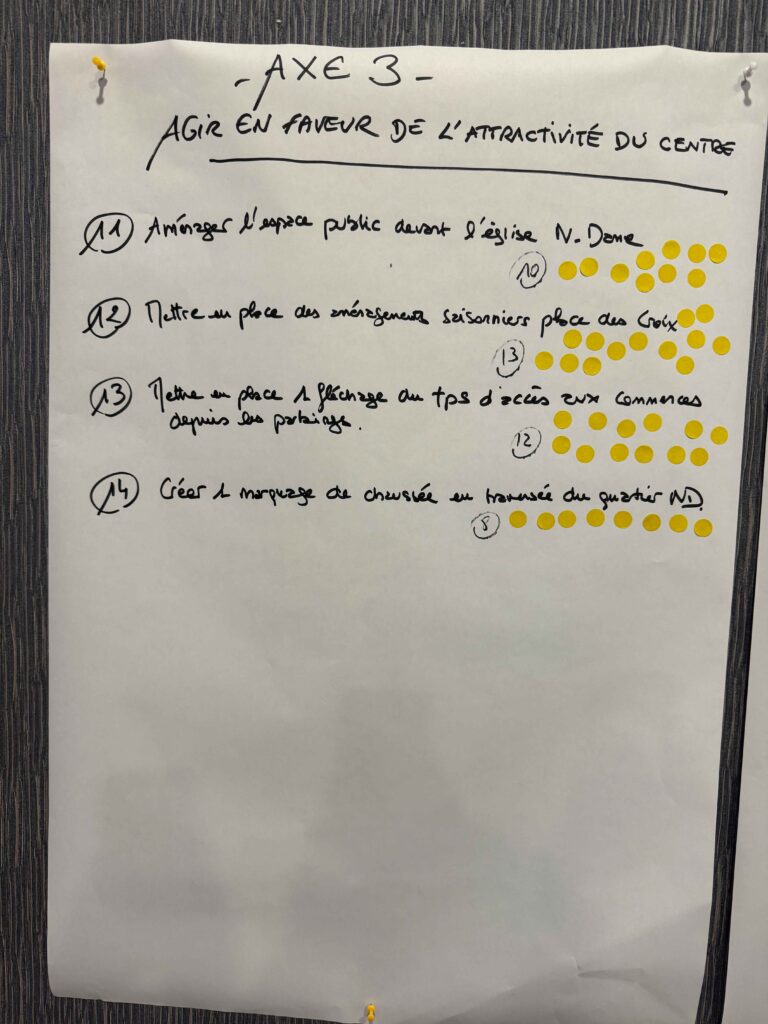 - AXE 3 -
AGIR EN FAVEUR DE L'ATTRACTIVITÉ DU CENTRE
11 Aménager l'espace public devant l'église N. Dame
10
12 Mettre en place des aménagements saisonniers place des Croix
13
13 Mettre en place 1 fléchage du tps d'accès aux commerces
depuis les parkings.
12
14 Créer 1 marquage de chaussée en traversée du quartier ND.
8